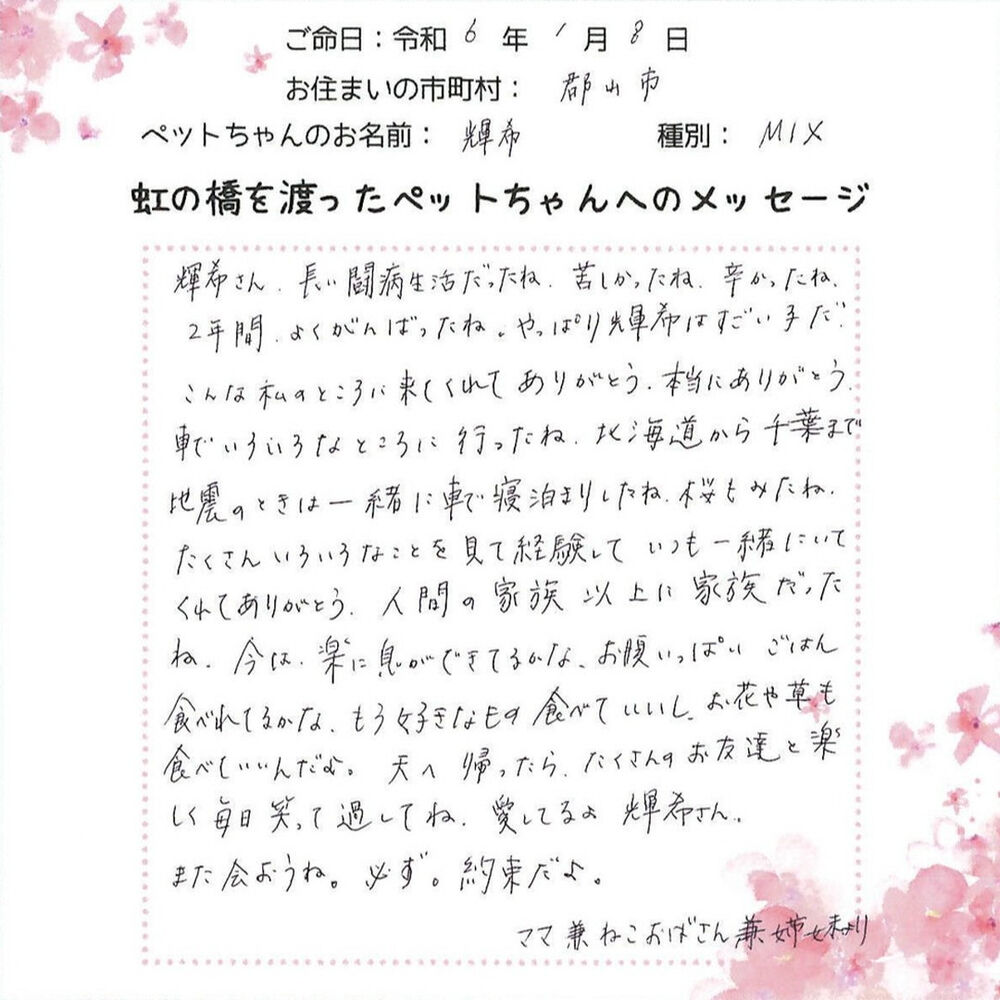 ご命日：令和 6 年 1 月 8 日
お住まいの市町村： 郡山市
ペットちゃんのお名前： 輝希 種別： MIX
虹の橋を渡ったペットちゃんへのメッセージ
輝希さん、長い闘病生活だったね、苦しかったね、辛かったね、
2年間、よくがんばったね。やっぱり輝希はすごい子だ。
こんな私のところに来てくれてありがとう、本当にありがとう、
車でいろいろなところに行ったね、北海道から千葉まで
地震のときは一緒に車で寝泊まりしたね、桜もみたね、
たくさんいろいろなことを見て経験していつも一緒にいて
くれてありがとう、人間の家族以上に家族だった
ね、今は、楽に息ができてるかな、お腹いっぱいごはん
食べれてるかな、もう好きなもの食べていいし、お花や草も
食べていいんだよ。天へ帰ったら、たくさんのお友達と楽
しく毎日笑って過してね、愛してるよ輝希さん。
また会おうね。必ず。約束だよ。
ママ兼ねこおばさん兼姉妹より